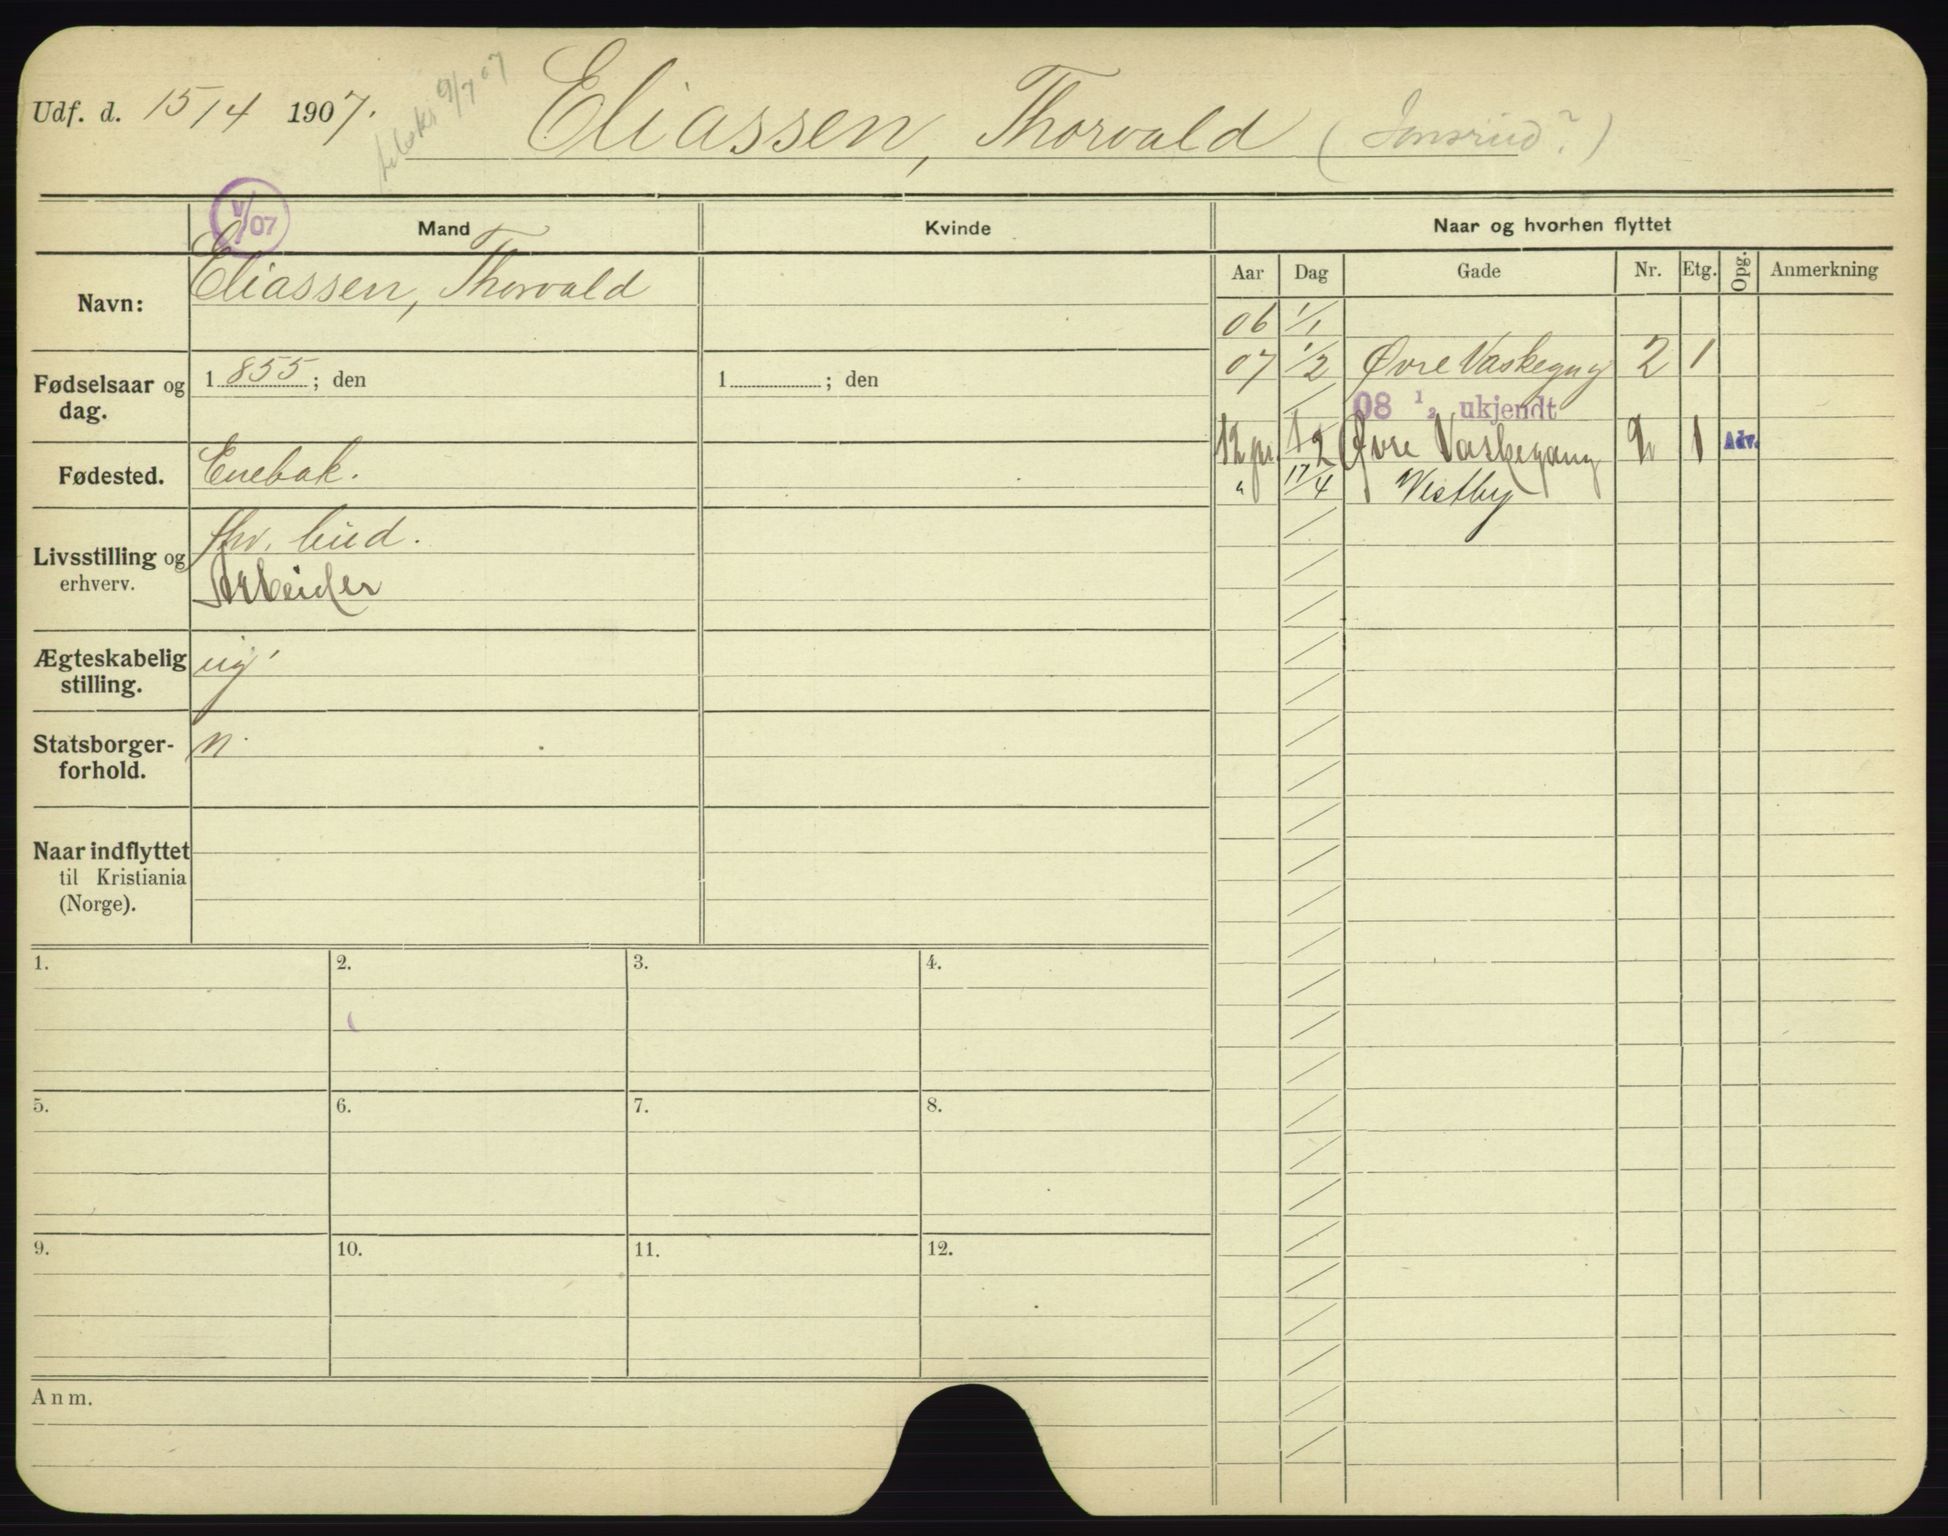 Udf. d. 15/4 1907. 9/7 07 Eliassen, Thorvald ( ? )
V/07
Mand Kvinde Naar og hvorhen flyttet
Aar Dag Gade Nr. Etg. Opg. Anmerkning
Navn: Eliassen, Thorvald
Fødselsaar og dag. 1855 ; den 1 ; den
Fødested. Enebak.
Livsstilling og erhverv. bud.
Arbeider
Ægteskabelig stilling. ug
Statsborgerforhold. n.
Naar indflyttet
til Kristiania
(Norge).
06 1/1
07 1/2 Øvre Vaskegng 2 1
08 1/2 ukjendt
12 pr. 1/2 Øvre Vaskegang 2 1 Adv.
" 17/4 Vestby
1. 2. 3. 4.
5. 6. 7. 8.
9. 10. 11. 12.
Anm.